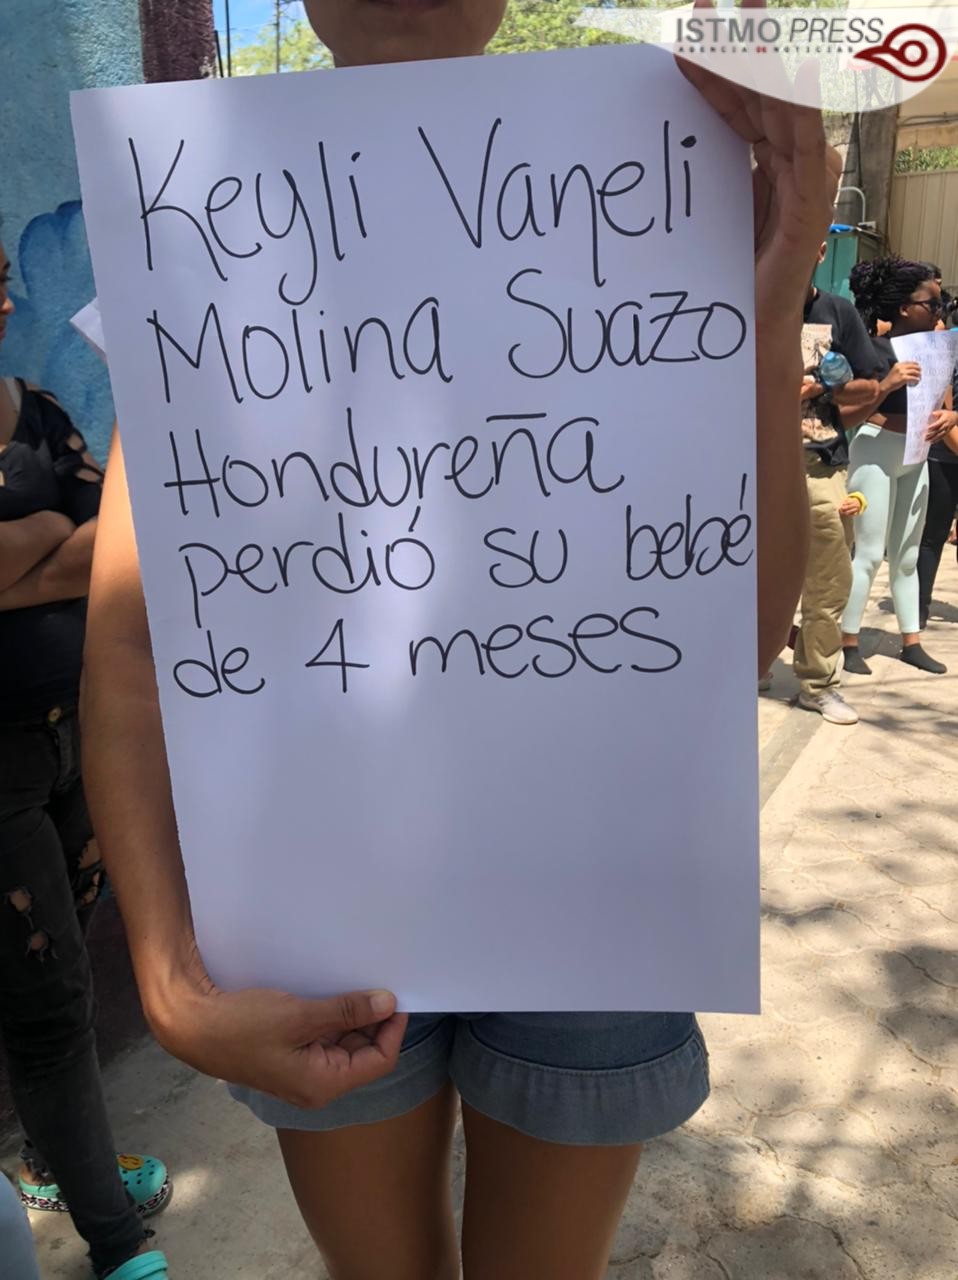 ISTMO PRESS
AGENCIA DE NOTICIAS
Keyli Vaneli
Molina Suazo
Hondureña
perdió su bebé
de 4 meses